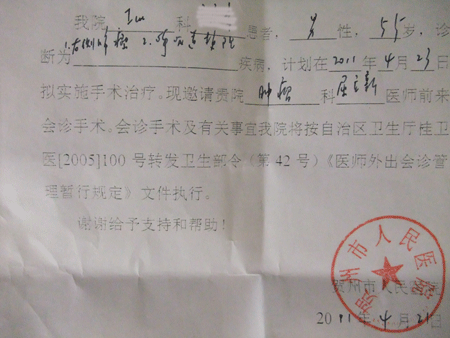 我院 Icu 科 患者, 男 性, 55 岁, 诊
断为 疾病, 计划在 2011 年 4 月 23 日
拟实施手术治疗。现邀请贵院 肿瘤 科 医师前来
会诊手术。会诊手术及有关事宜我院将按自治区卫生厅桂卫
医[2005]100 号转发卫生部令(第 42 号)《医师外出会诊管
理暂行规定》文件执行。
谢谢给予支持和帮助!
贺州市人民医院
贺州市人民医院
2011 年 4 月 21 日